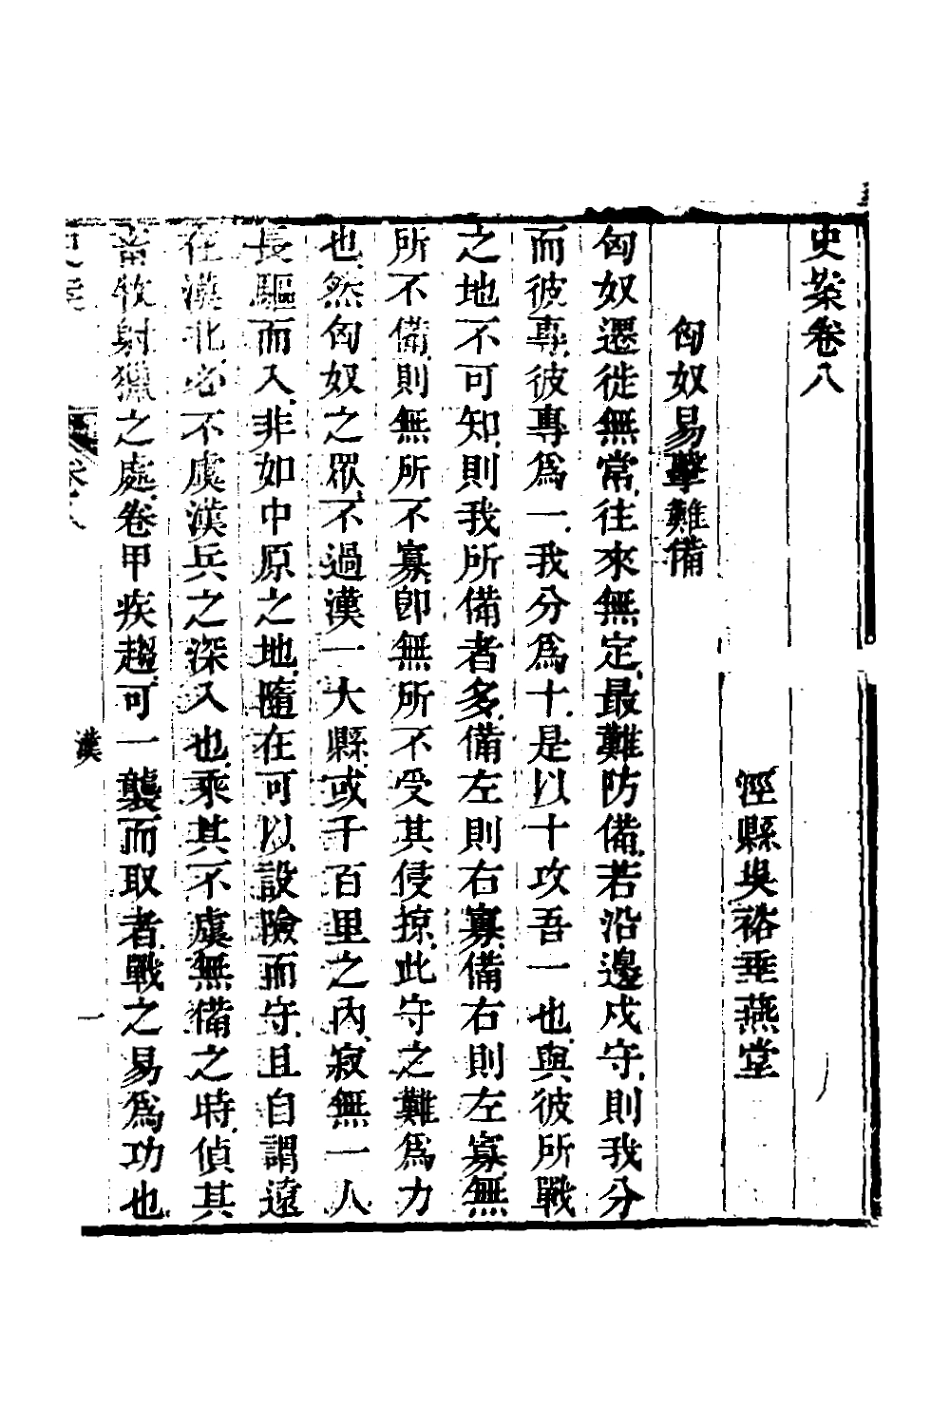 史案卷八
涇縣吳裕垂燕堂
匈奴易擊難備
匈奴遷徙無常往來無定最難防備若沿邊戍守則我分
而彼專彼專爲一我分爲十是以十攻吾一也與彼所戰
之地不可知則我所備者多備左則右寡備右則左寡無
所不備則無所不寡卽無所不受其侵掠此守之難爲力
也然匈奴之眾不過漢一大縣或千百里之內寂無一人
長驅而入非如中原之地隨在可以設險而守且自謂遠
在漠北必不虞漢兵之深入也乘其不虞無備之時偵其
畜牧射獵之處卷甲疾趨可一襲而取者戰之易爲功也
史案
卷八
漢
一